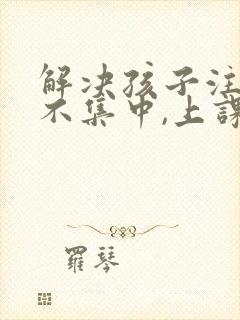 解决孩子注
不集中,上課
羅琴